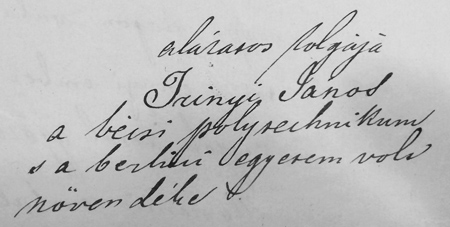 alázatos szolgája
Irinyi János
a bécsi polytechnikum
s a berlini egyetem volt
növendéke